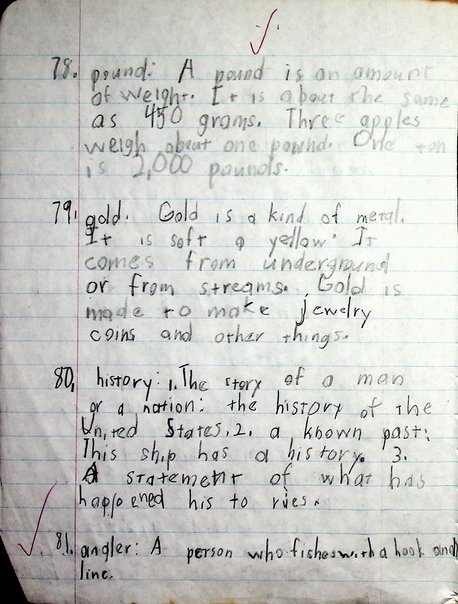 78. pound: A pound is an amount
of weight. It is about the same
as 450 grams. Three apples
weigh about one pound. One ton
is 2,000 pounds.
79. gold. Gold is a kind of metal.
It is soft a yellow. It
comes from underground
or from streams. Gold is
made to make jewelry
coins and other things.
80, history: 1. The story of a man
or a nation: the history of the
United States, 2. a known past:
This ship has a history. 3.
A statement of what has
happened his to ries.
81. angler: A person who fishes with a hook and
line.